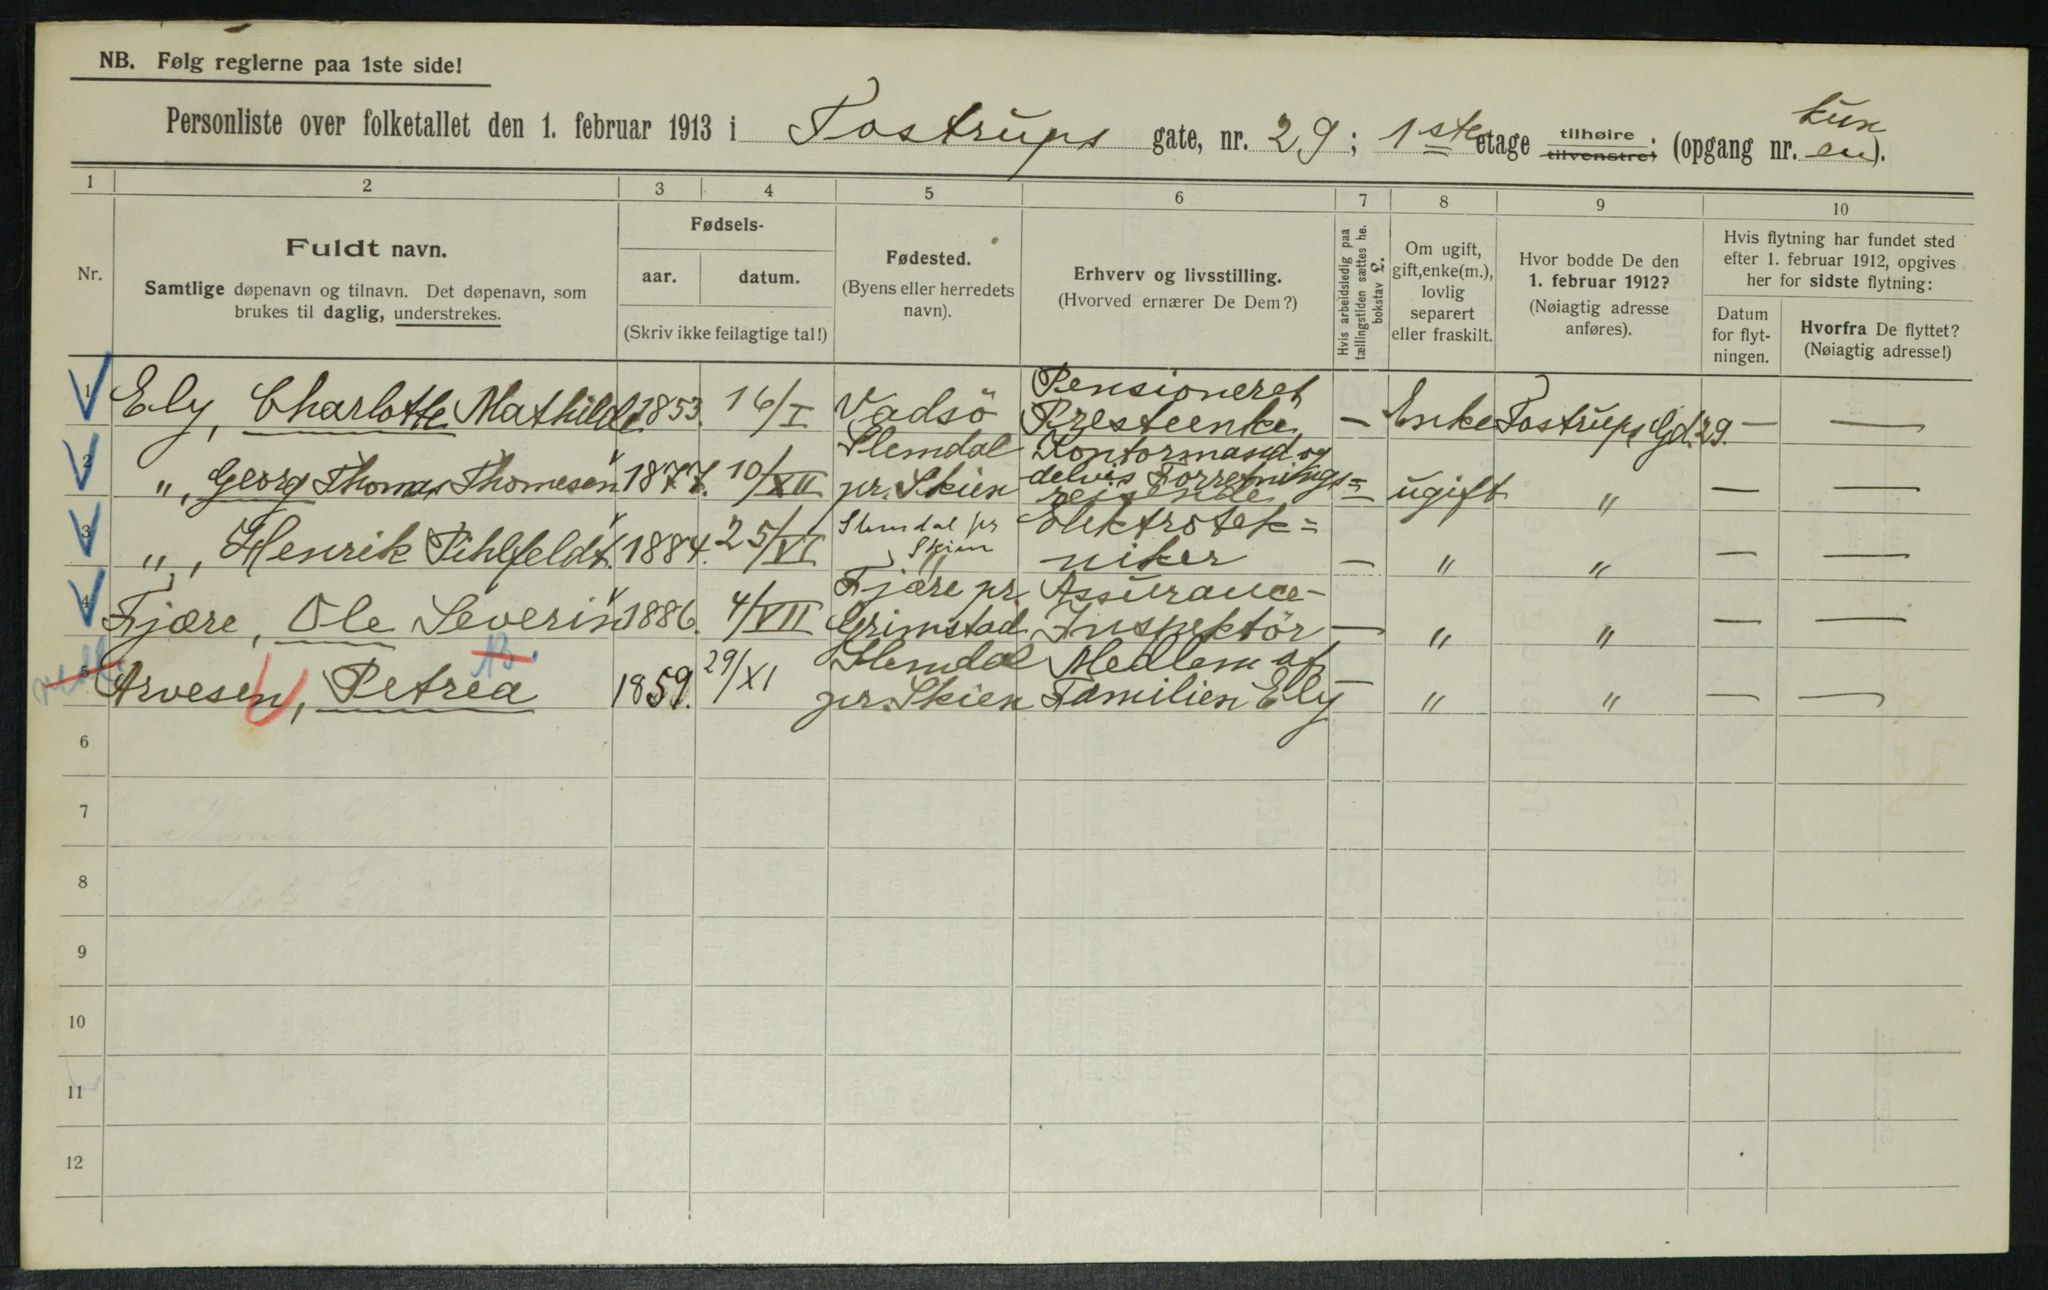 NB. Følg reglerne paa 1ste side!
Personliste over folketallet den 1. februar 1913 i Tostrups gate, nr. 29; 1ste etage tilhøire tilvenstre; (opgang nr. kun en).
1 2 3 4 5 6 7 8 9 10
Nr.
Fuldt navn.
Samtlige døpenavn og tilnavn. Det døpenavn, som
brukes til daglig, understrekes.
Fødsels-
aar. datum.
(Skriv ikke feilagtige tal!)
Fødested.
(Byens eller herredets
navn).
Erhverv og livsstilling.
(Hvorved ernærer De Dem?)
Hvis arbeidsledig paa
tællingstiden sættes he.
bokstav L.
Om ugift,
gift, enke(m.),
lovlig
separert
eller fraskilt.
Hvor bodde De den
1. februar 1912?
(Nøiagtig adresse
anføres).
Hvis flytning har fundet sted
efter 1. februar 1912, opgives
her for sidste flytning:
Datum
for flyt-
ningen.
Hvorfra De flyttet?
(Nøiagtig adresse!)
1 Ely, Charlotte Mathilde 1853. 16/I Vadsö Pensioneret Presteenke — Enke Tostrups Gd. 29. — —
2 ", Georg Thomas Thomesen 1877. 10/XII Slemdal pr. Skien Kontormand og delvis Forretnings= reisende — ugift " — —
3 ", Henrik Pihlfeldt. 1884. 25/VI Slemdal pr Skien Elektrotek= niker — " " — —
4 Fjære, Ole Severin 1886. 4/VII Fjære pr. Grimstad Assurance- Inspektör — " " — —
5 Arvesen, Petrea 1859. 29/XI Slemdal pr. Skien Medlem af Familien Ely — " " — —
6
7
8
9
10
11
12